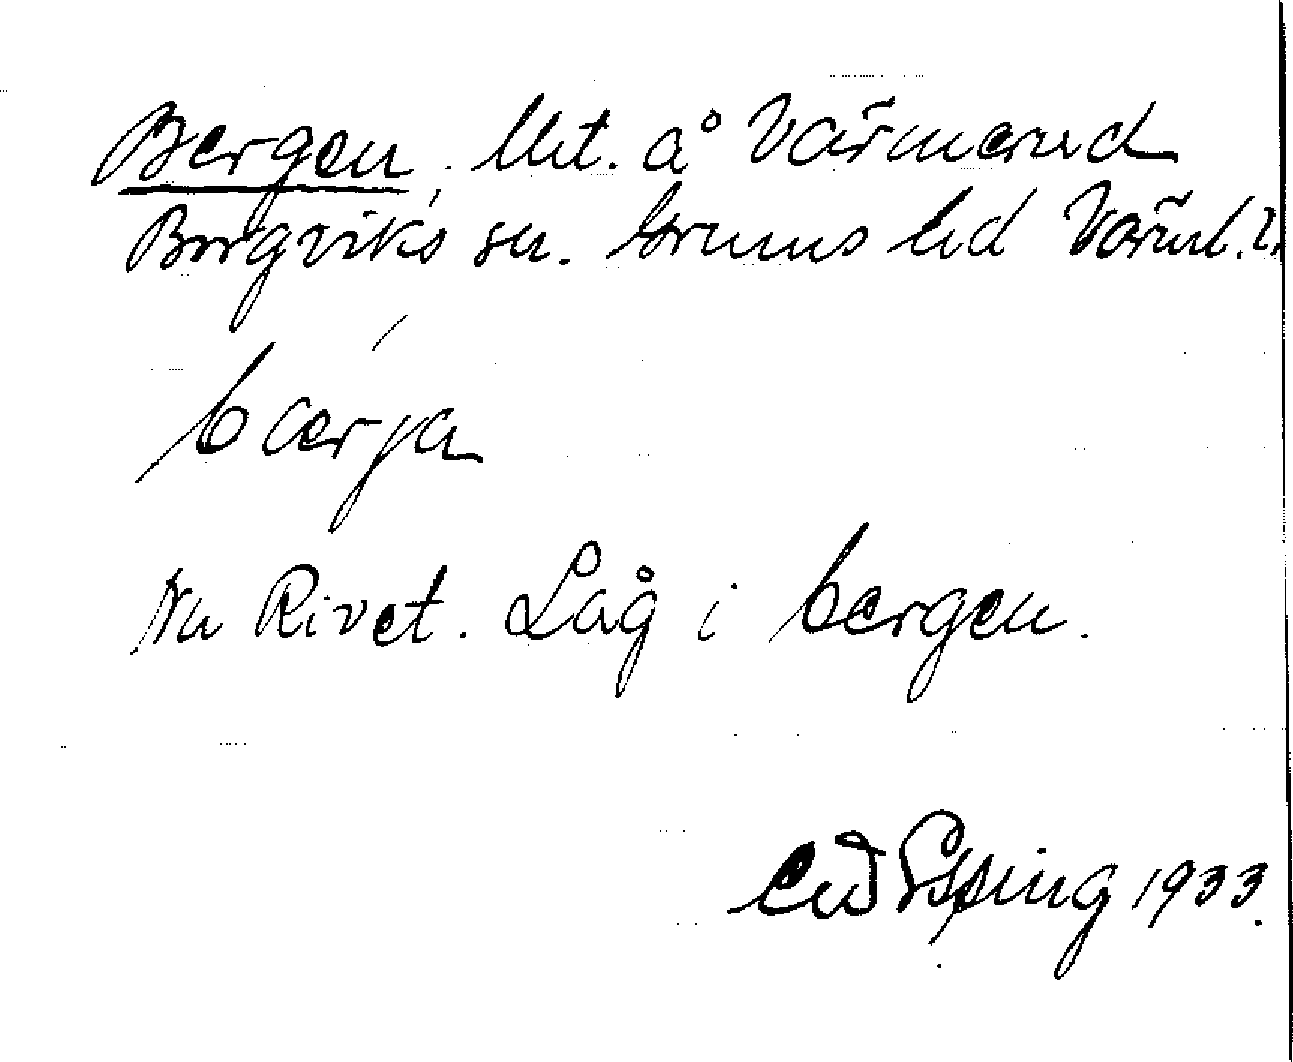 Bergen, Ut. å Värmerud
Borgviks sn. Grums hd Värml. l.
bærja
Nu Rivet. Låg i bergen.
Espling 1933.